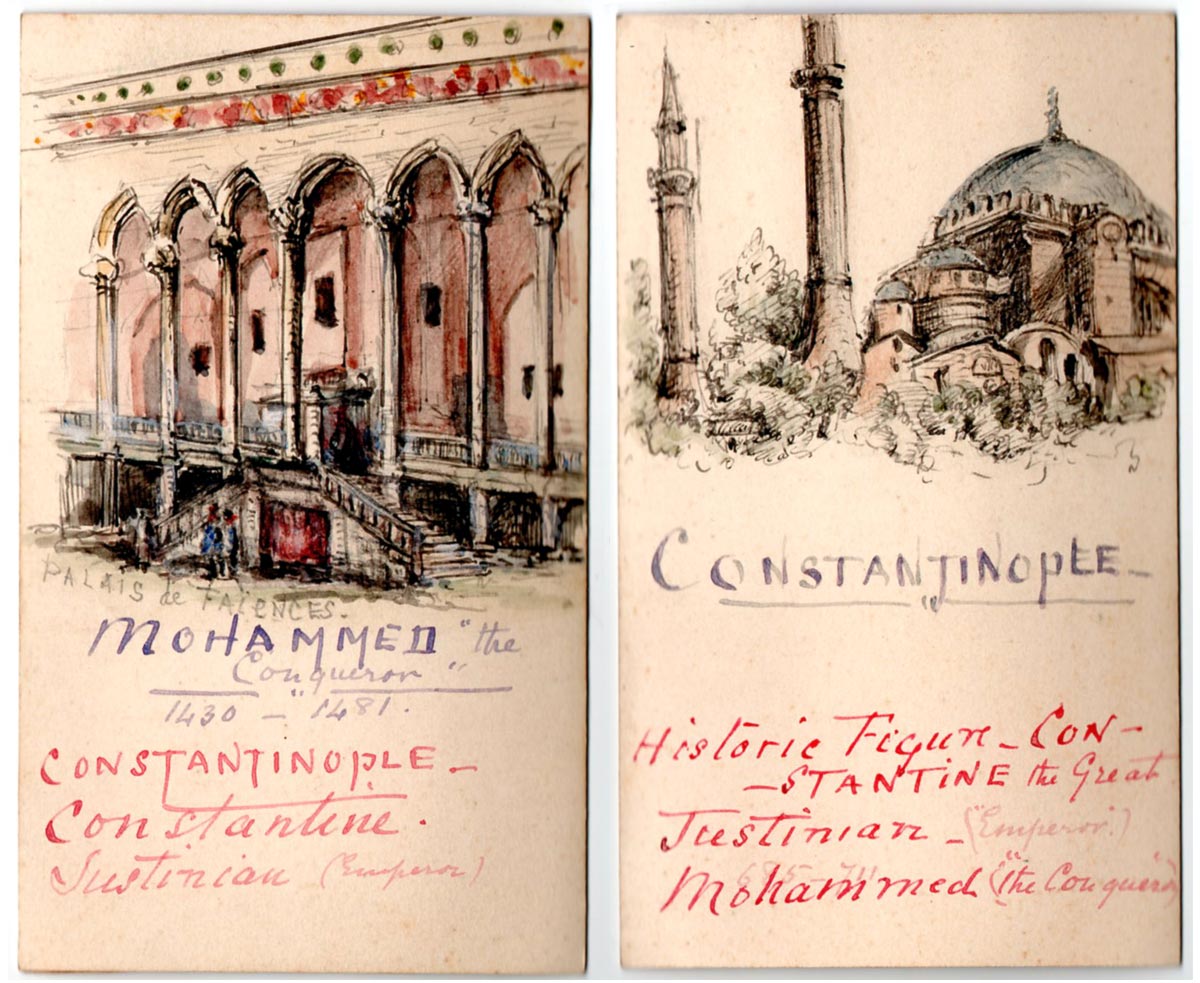 PALAIS de FAÏENCES.
MOHAMMED "the
Conqueror"
1430 - 1481.
CONSTANTINOPLE -
Constantine.
Justinian (Emperor)
CONSTANTINOPLE -
Historic Figure - CON-
-STANTINE the Great
Justinian - (Emperor.)
685-711
Mohammed ("the Conqueror")